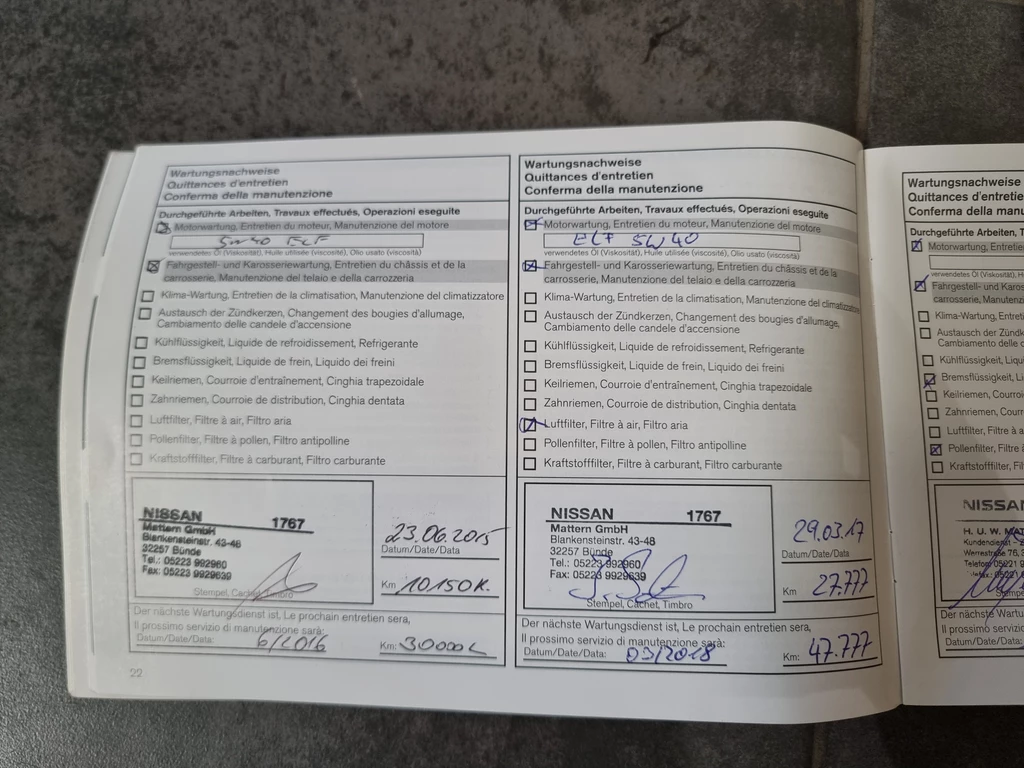 Wartungsnachweise
Quittances d'entretien
Conferma della manutenzione
Durchgeführte Arbeiten, Travaux effectués, Operazioni eseguite
Motorwartung, Entretien du moteur, Manutenzione del motore
5W40 ELF
verwendetes Öl (Viskosität), Huile utilisée (viscosité), Olio usato (viscosità)
Fahrgestell- und Karosseriewartung, Entretien du châssis et de la
carrosserie, Manutenzione del telaio e della carrozzeria
Klima-Wartung, Entretien de la climatisation, Manutenzione del climatizzatore
Austausch der Zündkerzen, Changement des bougies d'allumage,
Cambiamento delle candele d'accensione
Kühlflüssigkeit, Liquide de refroidissement, Refrigerante
Bremsflüssigkeit, Liquide de frein, Liquido dei freini
Keilriemen, Courroie d'entraînement, Cinghia trapezoidale
Zahnriemen, Courroie de distribution, Cinghia dentata
Luftfilter, Filtre à air, Filtro aria
Pollenfilter, Filtre à pollen, Filtro antipolline
Kraftstofffilter, Filtre à carburant, Filtro carburante
NISSAN 1767
Mattern GmbH
Blankensteinstr. 43-48
32257 Bünde
Tel.: 05223 992960
Fax: 05223 9929639
Stempel, Cachet, Timbro
23.06.2015
Datum/Date/Data
Km 10150K.
Der nächste Wartungsdienst ist, Le prochain entretien sera,
Il prossimo servizio di manutenzione sarà:
Datum/Date/Data: 6/2016 Km: 30000
22
Wartungsnachweise
Quittances d'entretien
Conferma della manutenzione
Durchgeführte Arbeiten, Travaux effectués, Operazioni eseguite
Motorwartung, Entretien du moteur, Manutenzione del motore
ELF 5W40
verwendetes Öl (Viskosität), Huile utilisée (viscosité), Olio usato (viscosità)
Fahrgestell- und Karosseriewartung, Entretien du châssis et de la
carrosserie, Manutenzione del telaio e della carrozzeria
Klima-Wartung, Entretien de la climatisation, Manutenzione del climatizzatore
Austausch der Zündkerzen, Changement des bougies d'allumage,
Cambiamento delle candele d'accensione
Kühlflüssigkeit, Liquide de refroidissement, Refrigerante
Bremsflüssigkeit, Liquide de frein, Liquido dei freini
Keilriemen, Courroie d'entraînement, Cinghia trapezoidale
Zahnriemen, Courroie de distribution, Cinghia dentata
Luftfilter, Filtre à air, Filtro aria
Pollenfilter, Filtre à pollen, Filtro antipolline
Kraftstofffilter, Filtre à carburant, Filtro carburante
NISSAN 1767
Mattern GmbH
Blankensteinstr. 43-48
32257 Bünde
Tel.: 05223 992960
Fax: 05223 9929639
Stempel, Cachet, Timbro
29.03.17
Datum/Date/Data
Km 27.777
Der nächste Wartungsdienst ist, Le prochain entretien sera,
Il prossimo servizio di manutenzione sarà:
Datum/Date/Data: 03/2018 Km: 47.777
Wartungsnachweise
Quittances d'entretie
Conferma della manu
Durchgeführte Arbeiten, T
Motorwartung, Entretie
verwendetes Öl (Viskosität), H
Fahrgestell- und Karos
carrosserie, Manutenz
Klima-Wartung, Entreti
Austausch der Zündk
Cambiamento delle c
Kühlflüssigkeit, Liquid
Bremsflüssigkeit, Liqu
Keilriemen, Courroie
Zahnriemen, Courro
Luftfilter, Filtre à a
Pollenfilter, Filtre à
Kraftstofffilter, Filtr
NISSAN
H. U. W. MA
Kundendienst
Werrestraße 76,
Telefon 05221 9
Der nächste Wartu
Il prossimo servizio
Datum/Date/Data: